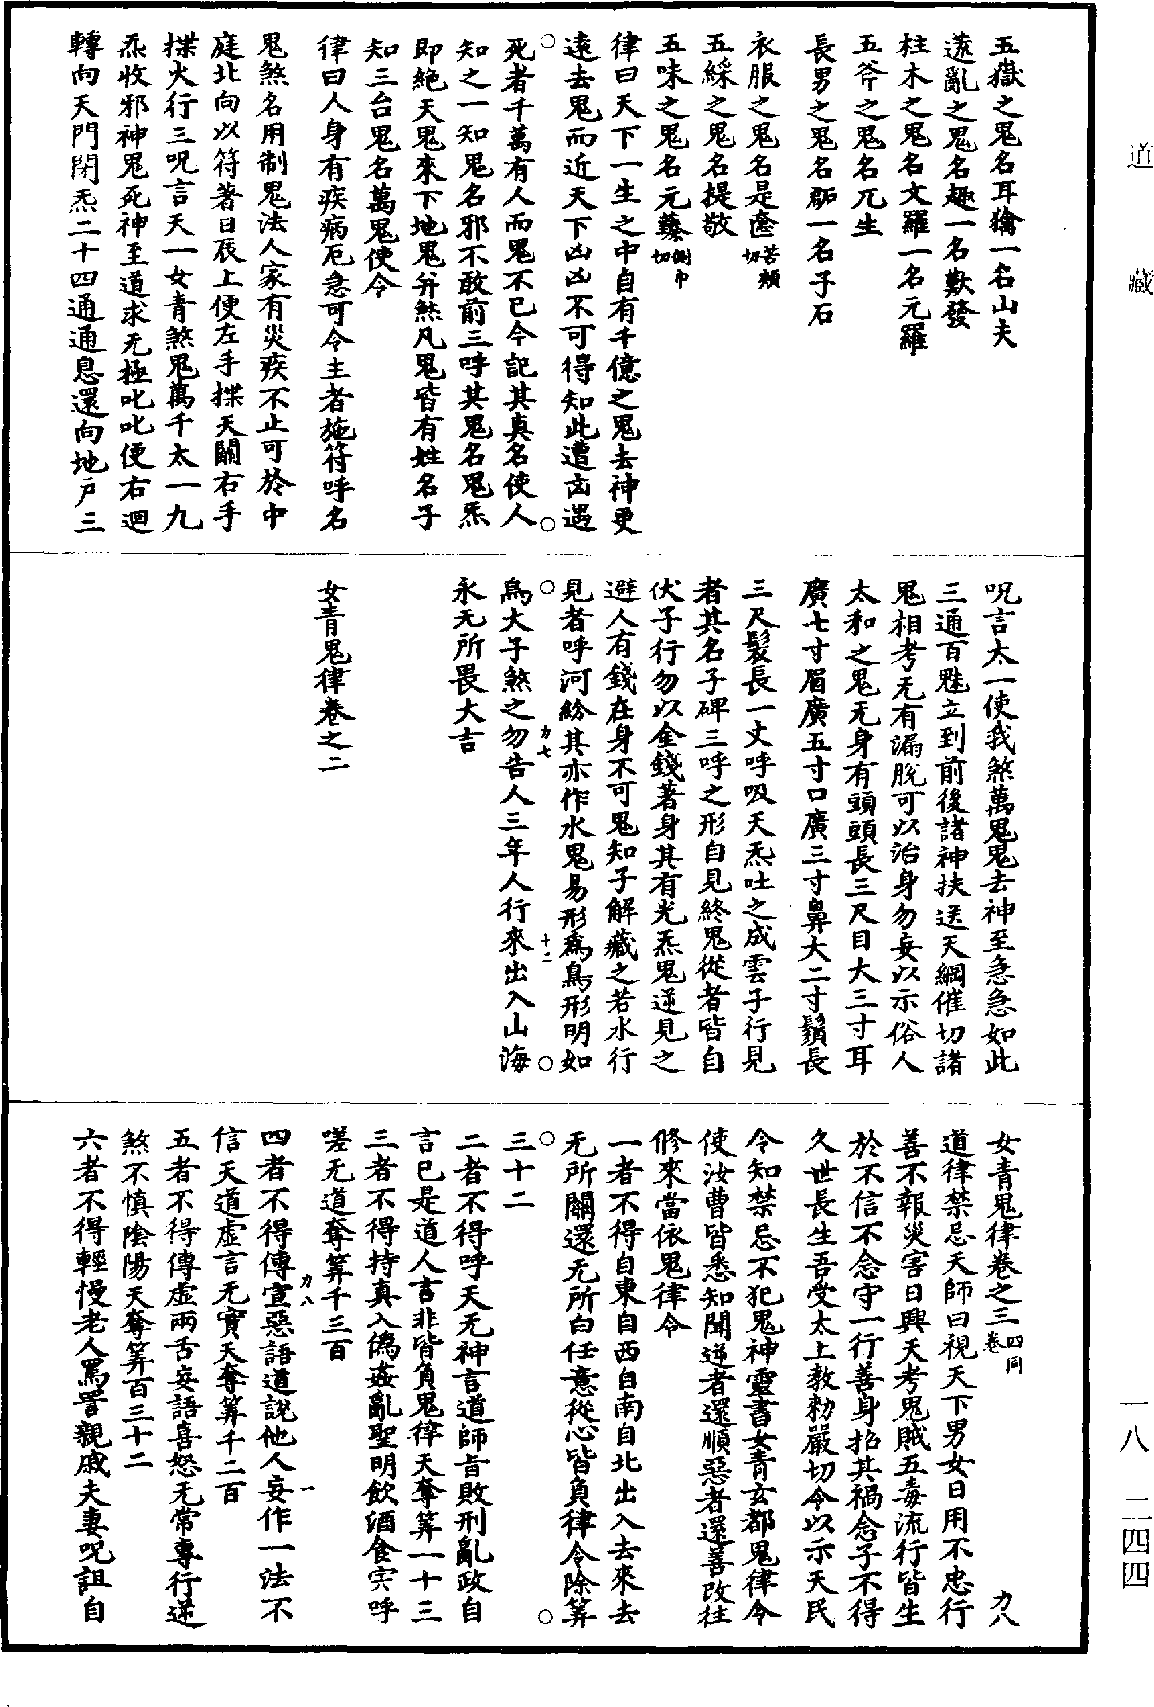 道藏
五嶽之鬼名耳𤢪一名山夫
遊亂之鬼名趣一名歎發
柱木之鬼名文羅一名元羅
五斧之鬼名兀生
長男之鬼名郻一名子石
衣服之鬼名是𪗆苦類切
五綵之鬼名提敬
五味之鬼名元蓁側巾切
律曰天下一生之中自有千億之鬼去神更
遠去鬼而近天下凶凶不可得知此遭凶遇
死者千萬有人而鬼不已今記其真名使人
知之一知鬼名邪不敢前三呼其鬼名鬼炁
即絕天鬼來下地鬼弁煞凡鬼皆有姓名子
知三台鬼名萬鬼使令
律曰人身有疾病厄急可令主者施符呼名
鬼煞名用制鬼法人家有災疾不止可於中
庭北向以符著日辰上便左手揲天關右手
揲火行三呪言天一女青煞鬼萬千太一九
炁收邪神鬼死神至道求无極叱叱便右迴
轉向天門閉炁二十四通通息還向地戶三
呪言太一使我煞萬鬼鬼去神至急急如此
三通百魅立到前後諸神扶送天綱催切諸
鬼相考无有漏脫可以治身勿妄以示俗人
太和之鬼无身有頭頭長三尺目大三寸耳
廣七寸眉廣五寸口廣三寸鼻大二寸鬚長
三尺髮長一丈呼吸天炁吐之成雲子行見
者其名子碑三呼之形自見終鬼從者皆自
伏子行勿以金錢著身其有光炁鬼逆見之
避人有錢在身不可鬼知子解藏之若水行
見者呼河紛其亦作水鬼易形為鳥形明如
力七 十二
烏大子煞之勿告人三年人行來出入山海
永无所畏大吉
女青鬼律卷之二
女青鬼律卷之三四同卷 力八
道律禁忌天師曰視天下男女日用不忠行
善不報災害日興天考鬼賊五毒流行皆生
於不信不念守一行善身招其禍念子不得
久世長生吾受太上教勑嚴切令以示天民
令知禁忌不犯鬼神靈書女青玄都鬼律令
使汝曹皆悉知聞逆者還順惡者還善改往
修來當依鬼律令
一者不得自東自西自南自北出入去來去
无所關還无所白任意從心皆負律令除筭
三十二
二者不得呼天无神言道師旨敗刑亂政自
言已是道人言非皆負鬼律天奪筭一十三
三者不得持真入偽姦亂聖明飲酒食宍呼
嗟无道奪筭千三百
力八 一
四者不得傳宣惡語道說他人妄作一法不
信天道虛言无實天奪筭千二百
五者不得傳虛兩舌妄語喜怒无常專行逆
煞不慎陰陽天奪筭百三十二
六者不得輕慢老人罵詈親戚夫妻呪詛自
一八 二四四